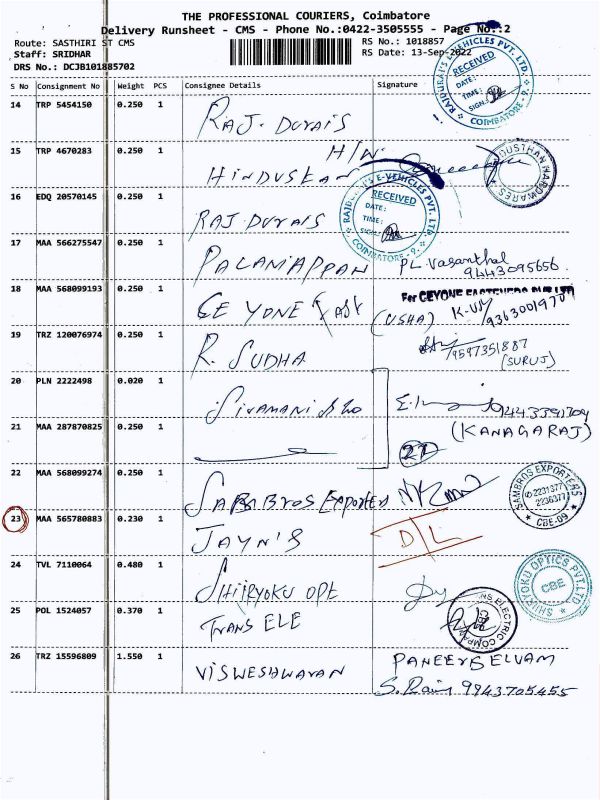 THE PROFESSIONAL COURIERS, Coimbatore
Delivery Runsheet - CMS - Phone No.:0422-3505555 - Page No.:2
Route: SASTHIRI ST CMS
RS No.: 1018857
Staff: SRIDHAR
RS Date: 13-Sep-2022
DRS No.: DCJB101885702
S No Consignment No Weight PCS Consignee Details Signature
RAJDURAI'S E-VEHICLES PVT. LTD.
RECEIVED
DATE:
TIME:
SIGN:
COIMBATORE - 9.
14 TRP 5454150 0.250 1 RAJ. DURAIS
15 TRP 4670283 0.250 1 HINDUSTAN H/W.
HARDWARES
16 EDQ 20570145 0.250 1 RAJ DURAIS
RAJDURAI'S E-VEHICLES PVT. LTD.
RECEIVED
DATE:
TIME:
SIGN:
COIMBATORE - 9.
17 MAA 566275547 0.250 1 PALANIAPPAN PL Vasanthal
9443095656
18 MAA 568099193 0.250 1 CE YONE Fast
For CEYONE FASTENERS PVT LTD
(USHA)
19 TRZ 120076974 0.250 1 R. SUDHA
9597351887
(SURUJ)
20 PLN 2222498 0.020 1
21 MAA 287870825 0.250 1 (KANAGARAJ)
22 MAA 568099274 0.250 1 SABABROS Exported
SAMBROS EXPORTERS
2231377
2236377
CBE-09
23 MAA 565780883 0.230 1 JAYN'S D/L
24 TVL 7110064 0.480 1 SHIIRYOKU OPE
SHIIRYOKU OPTICS PVT.LTD
CBE
25 POL 1524057 0.370 1 TRANS ELE
TRANS ELECTRIC COMPANY
26 TRZ 15596809 1.550 1 VISWESHWARAN PANEERSELVAM
9943705455